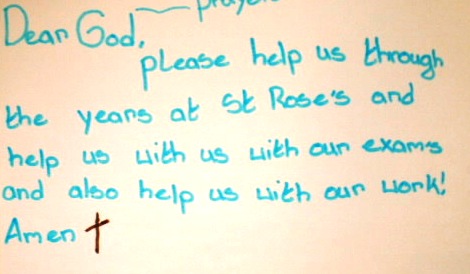 Dear God,
please help us through
the years at St Rose's and
help us with us with our exams
and also help us with our work!
Amen